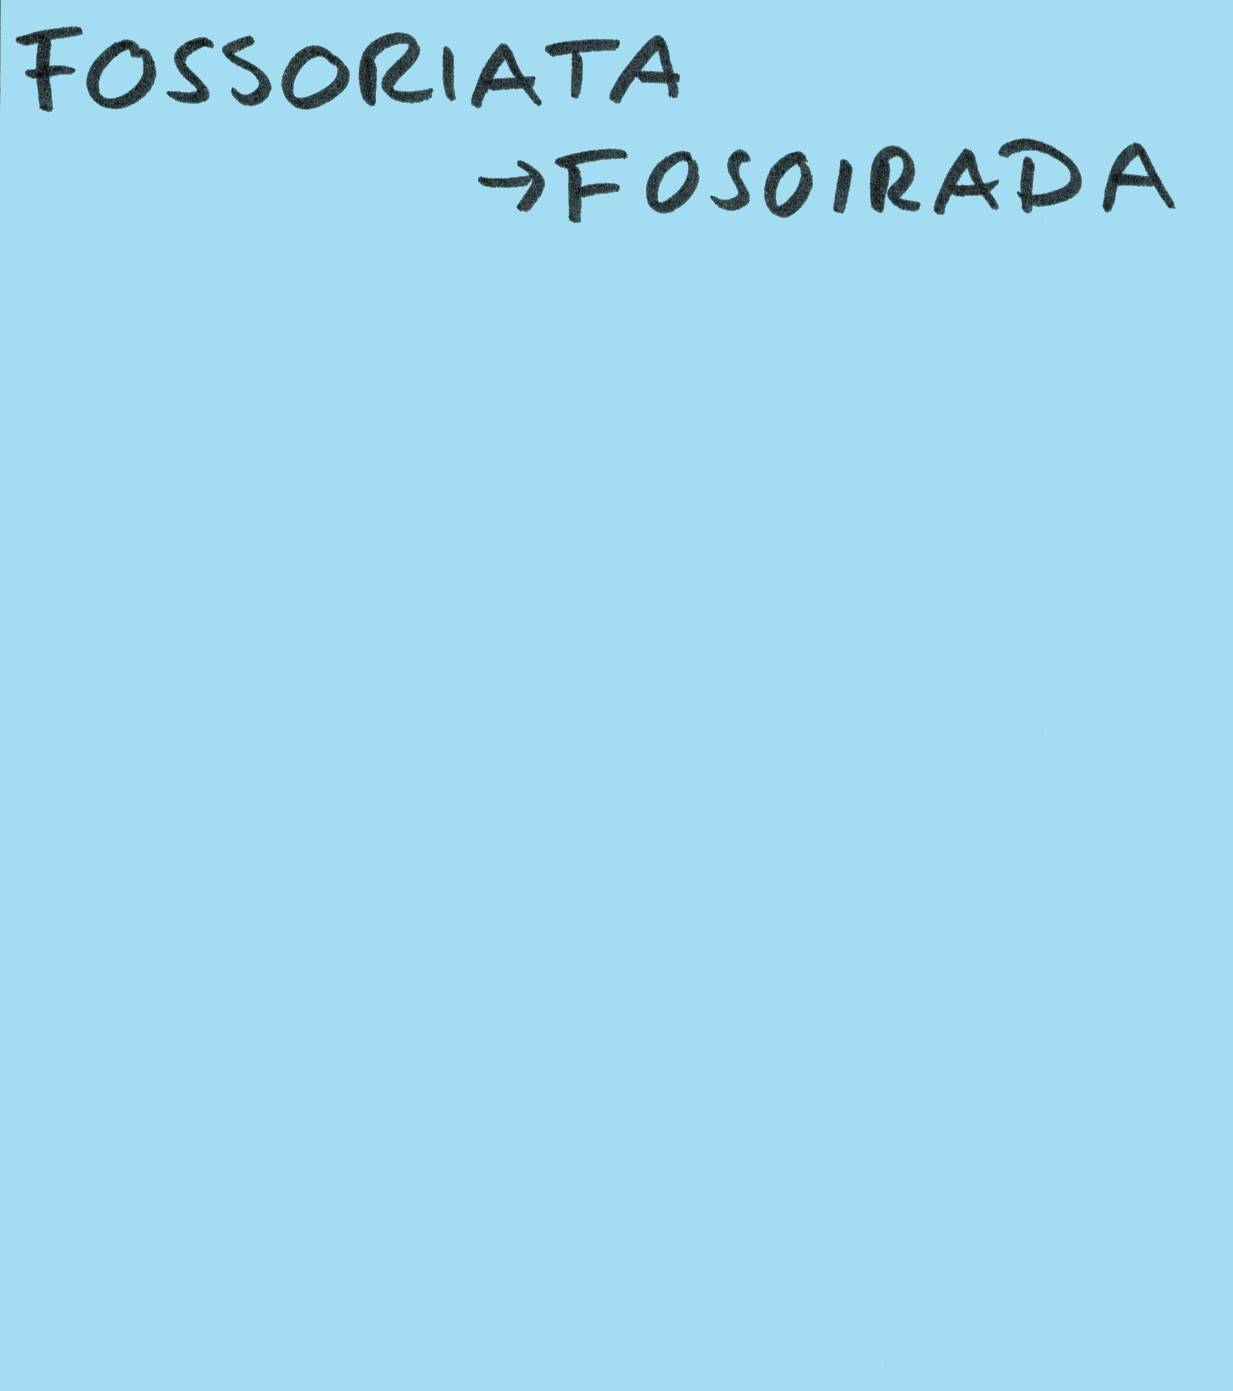 FOSSORIATA
→FOSOIRADA